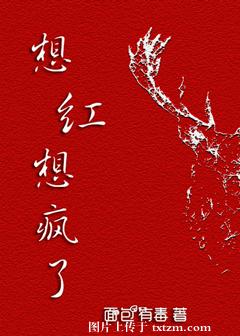 想红想疯了
面包有毒 著
图片上传于 txtzm.com